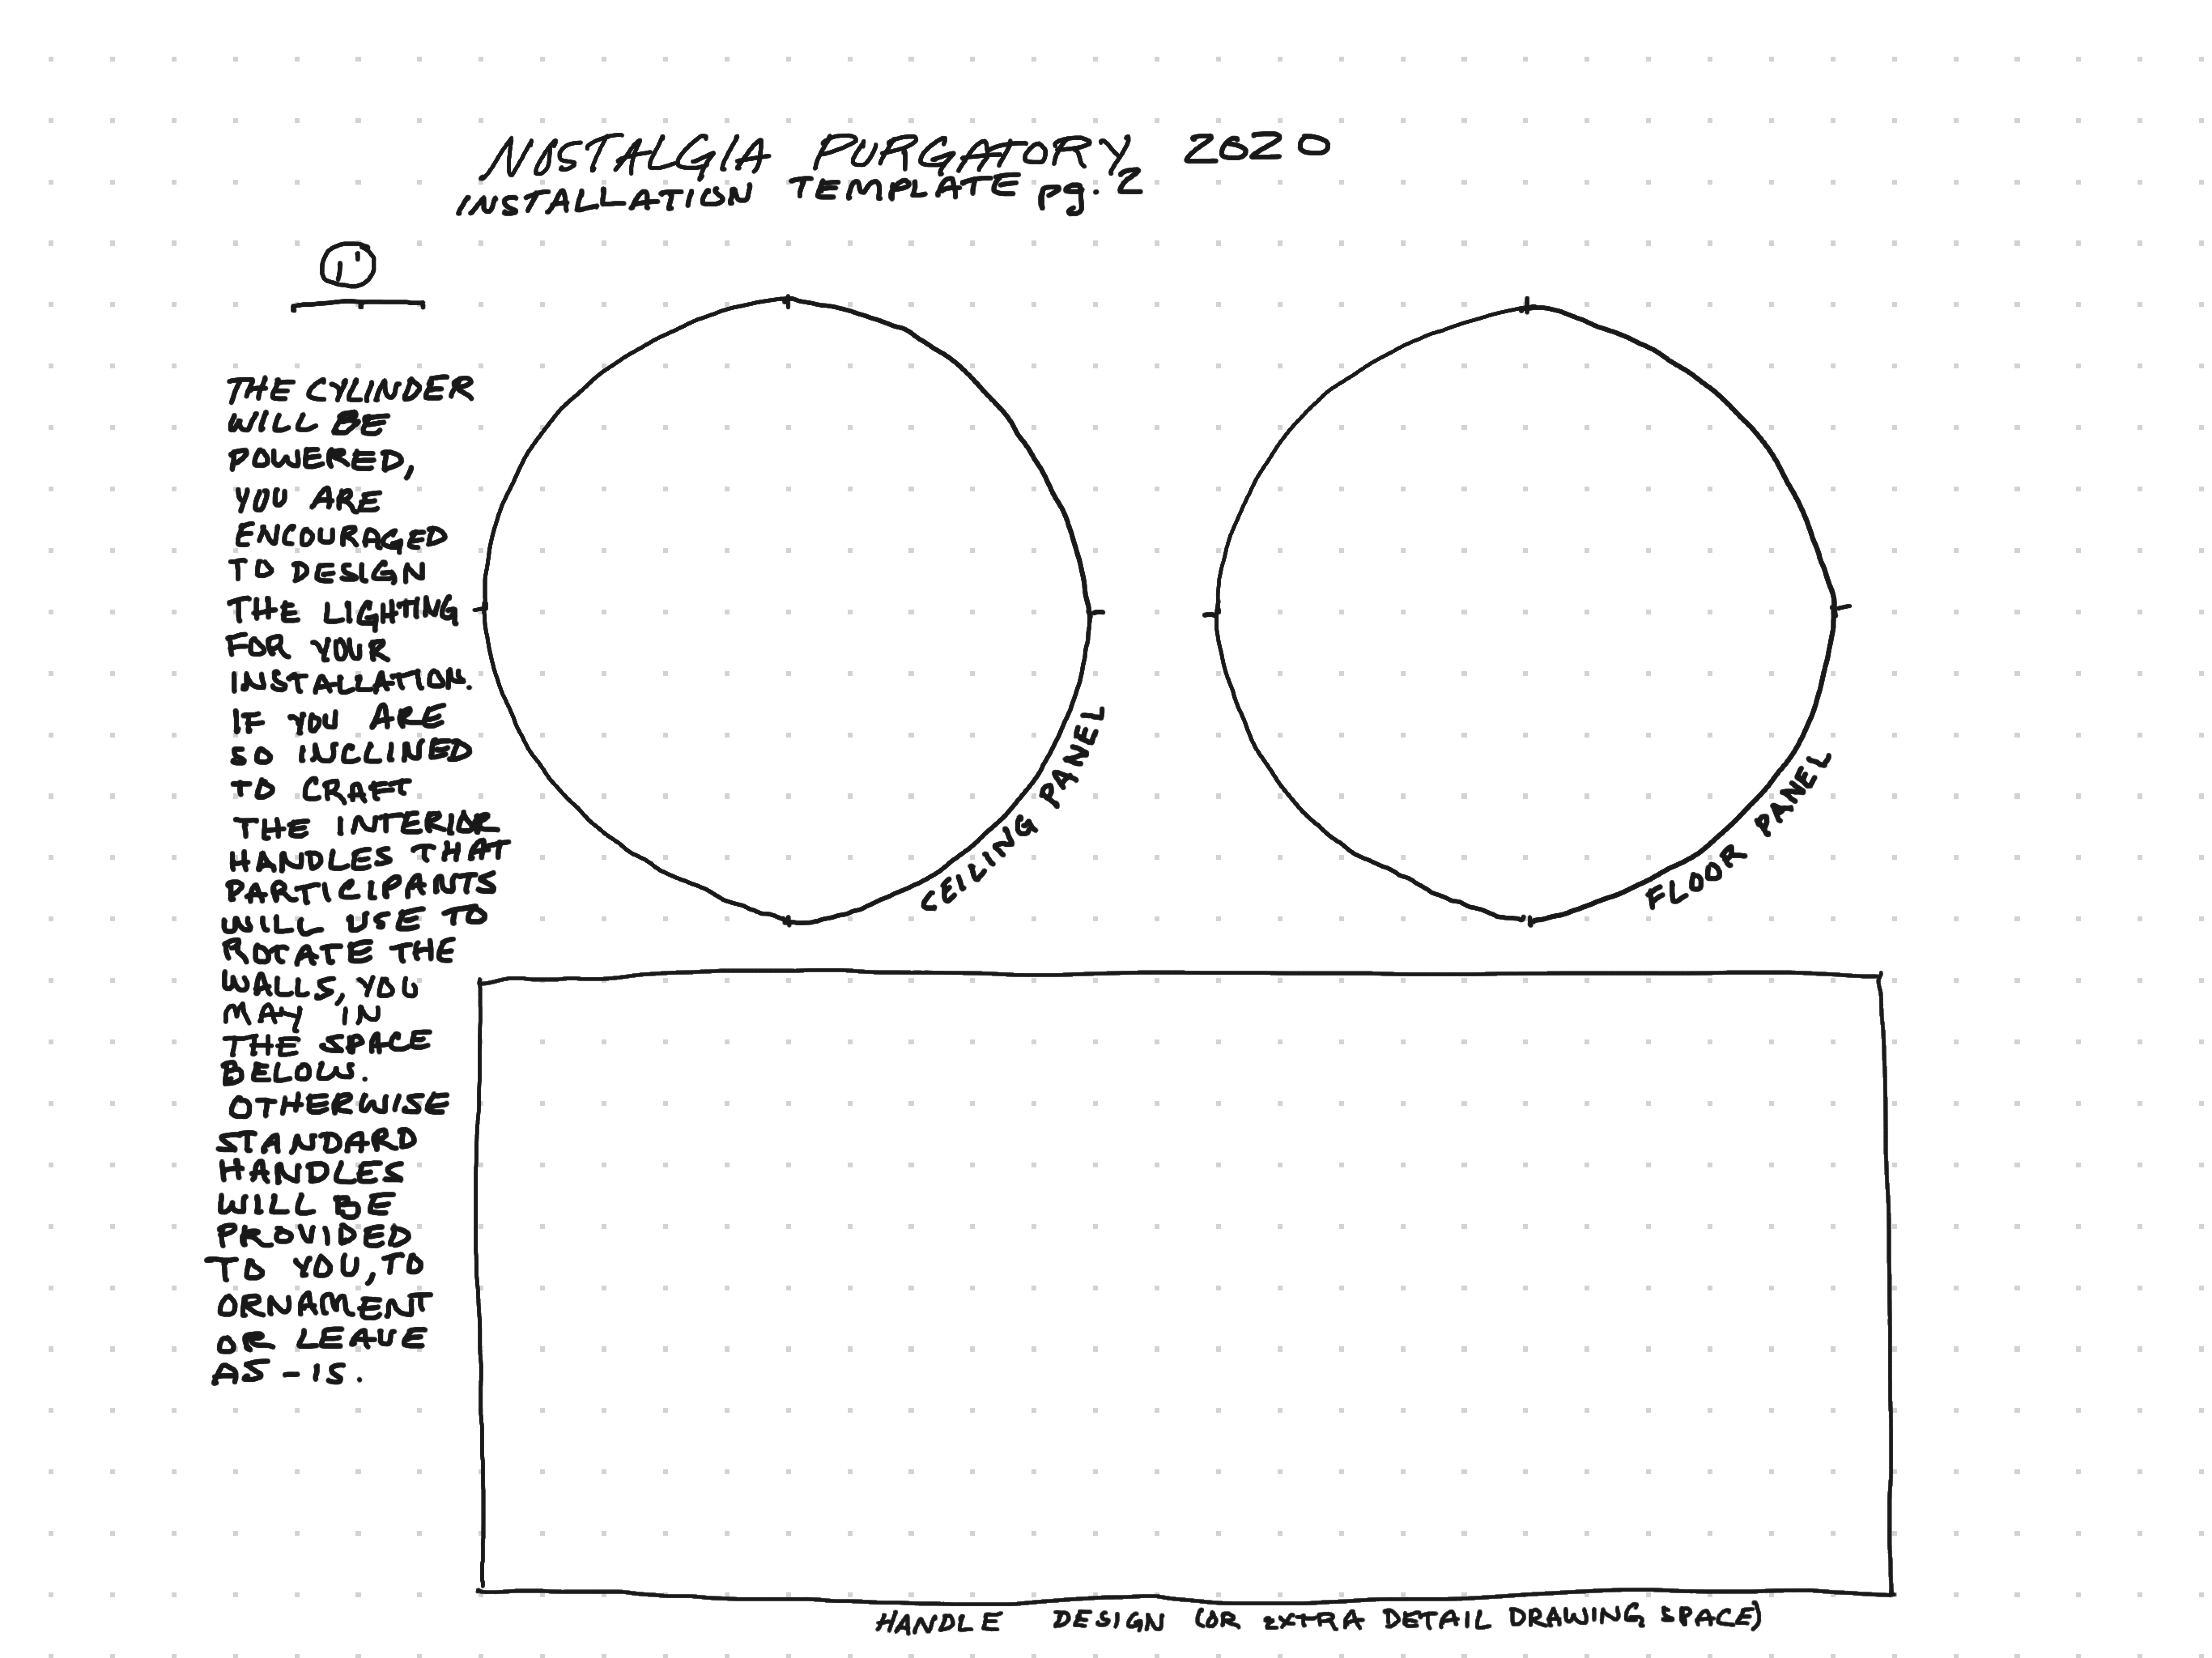 NOSTALGIA PURGATORY 2020
INSTALLATION TEMPLATE pg. 2
1'
THE CYLINDER
WILL BE
POWERED,
YOU ARE
ENCOURAGED
TO DESIGN
THE LIGHTING
FOR YOUR
INSTALLATION.
IF YOU ARE
SO INCLINED
TO CRAFT
THE INTERIOR
HANDLES THAT
PARTICIPANTS
WILL USE TO
ROTATE THE
WALLS, YOU
MAY IN
THE SPACE
BELOW.
OTHERWISE
STANDARD
HANDLES
WILL BE
PROVIDED
TO YOU, TO
ORNAMENT
OR LEAVE
AS-IS.
CEILING PANEL
FLOOR PANEL
HANDLE DESIGN (OR EXTRA DETAIL DRAWING SPACE)